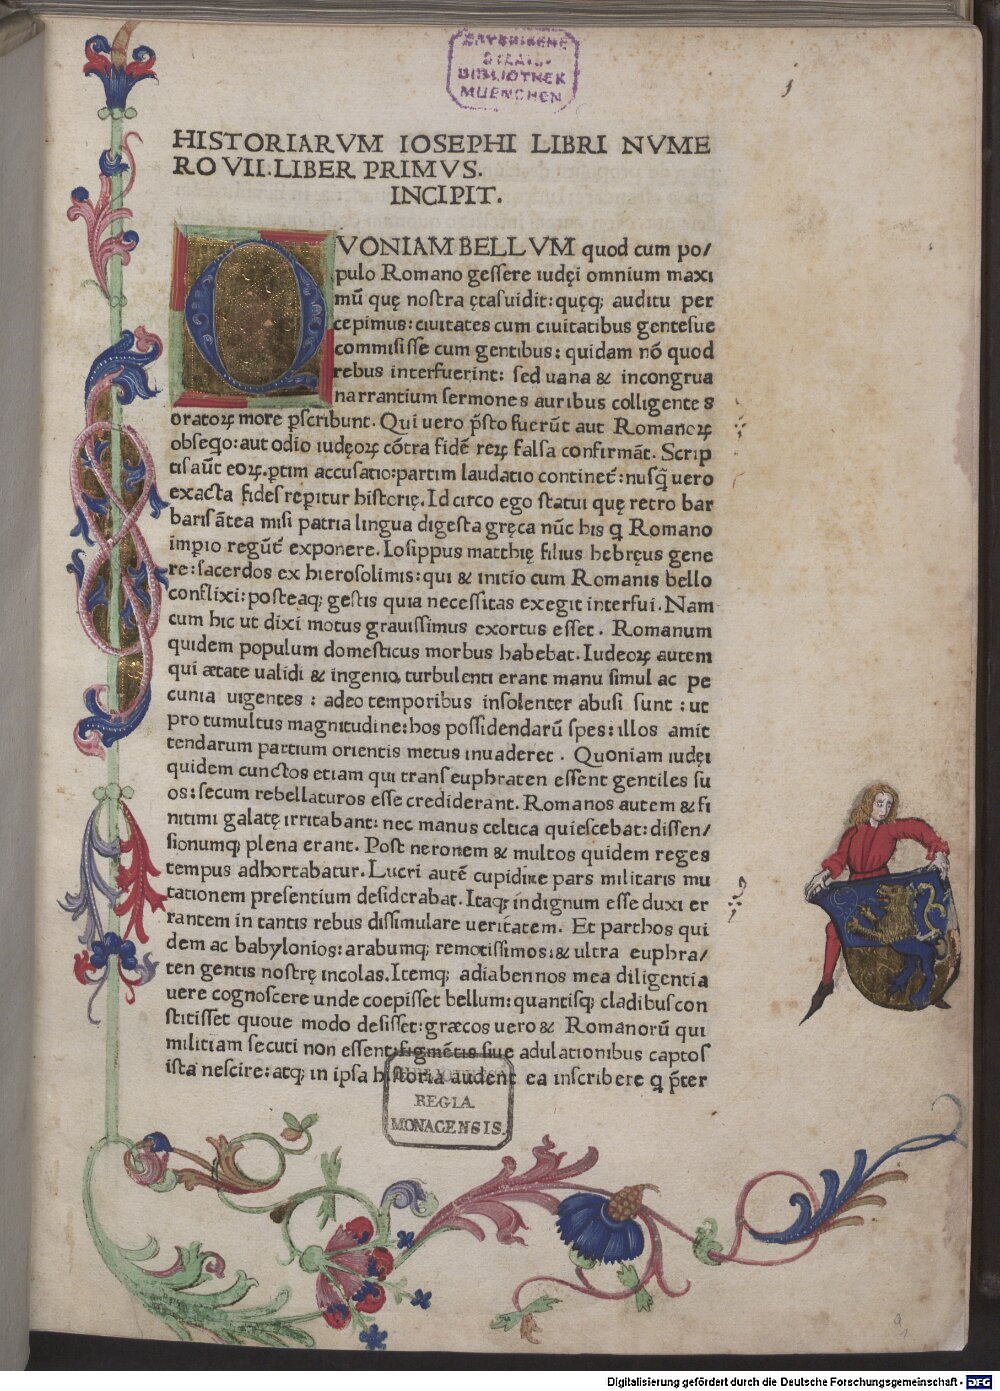 BAYERISCHE
STAATS-
BIBLIOTHEK
MUENCHEN
1
HISTORIARVM IOSEPHI LIBRI NVME
RO VII. LIBER PRIMVS.
INCIPIT.
QVONIAM BELLVM quod cum po/
pulo Romano gessere iudęi omnium maxi
mū quę nostra ętas uidit: quęq; auditu per
cepimus: ciuitates cum ciuitatibus gentesue
commisisse cum gentibus: quidam nō quod
rebus interfuerint: sed uana & incongrua
narrantium sermones auribus colligentes
oratoꝝ more pscribunt. Qui uero p̄sto fuerūt aut Romanoꝝ
obseqo: aut odio iudęoꝝ cōtra fidē reꝝ falsa confirmāt. Scrip
tis aūt eoꝝ. ptim accusatio: partim laudatio continet̄: nusq̄ uero
exacta fides repitur historię. Id circo ego statui quę retro bar
baris āntea misi patria lingua digesta gręca nūc his q Romano
impio regūt̄ exponere. Iosippus matthię filius hebręus gene
re: sacerdos ex hierosolimis: qui & initio cum Romanis bello
conflixi: posteaq; gestis quia necessitas exegit interfui. Nam
cum hic ut dixi motus grauissimus exortus esset. Romanum
quidem populum domesticus morbus habebat. Iudeoꝝ autem
qui ætate ualidi & ingenio, turbulenti erant manu simul ac pe
cunia uigentes: adeo temporibus insolenter abusi sunt: ut
pro tumultus magnitudine: hos possidendarū spes: illos amit
tendarum partium orientis metus inuaderet. Quoniam iudęi
quidem cunctos etiam qui trans euphraten essent gentiles su
os: secum rebellaturos esse crediderant. Romanos autem & fi
nitimi galatę irritabant: nec manus celtica quiescebat: dissen/
sionumq; plena erant. Post neronem & multos quidem reges
tempus adhortabatur. Lucri autē cupidine pars militaris mu
tationem presentium desiderabat. Itaq; indignum esse duxi er
rantem in tantis rebus dissimulare ueritatem. Et parthos qui
dem ac babylonios: arabumq; remotissimos: & ultra euphra/
ten gentis nostrę incolas. Itemq; adiabennos mea diligentia
uere cognoscere unde coepisset bellum: quantisq; cladibus con
stitisset quoue modo desisset: græcos uero & Romanorū qui
militiam secuti non essent: figmētis siue adulationibus captos
ista nescire: atq; in ipsa historia audent ea inscribere q p̄ter
BIBLIOTHECA
REGIA
MONACENSIS.
a
1
Digitalisierung gefördert durch die Deutsche Forschungsgemeinschaft - DFG